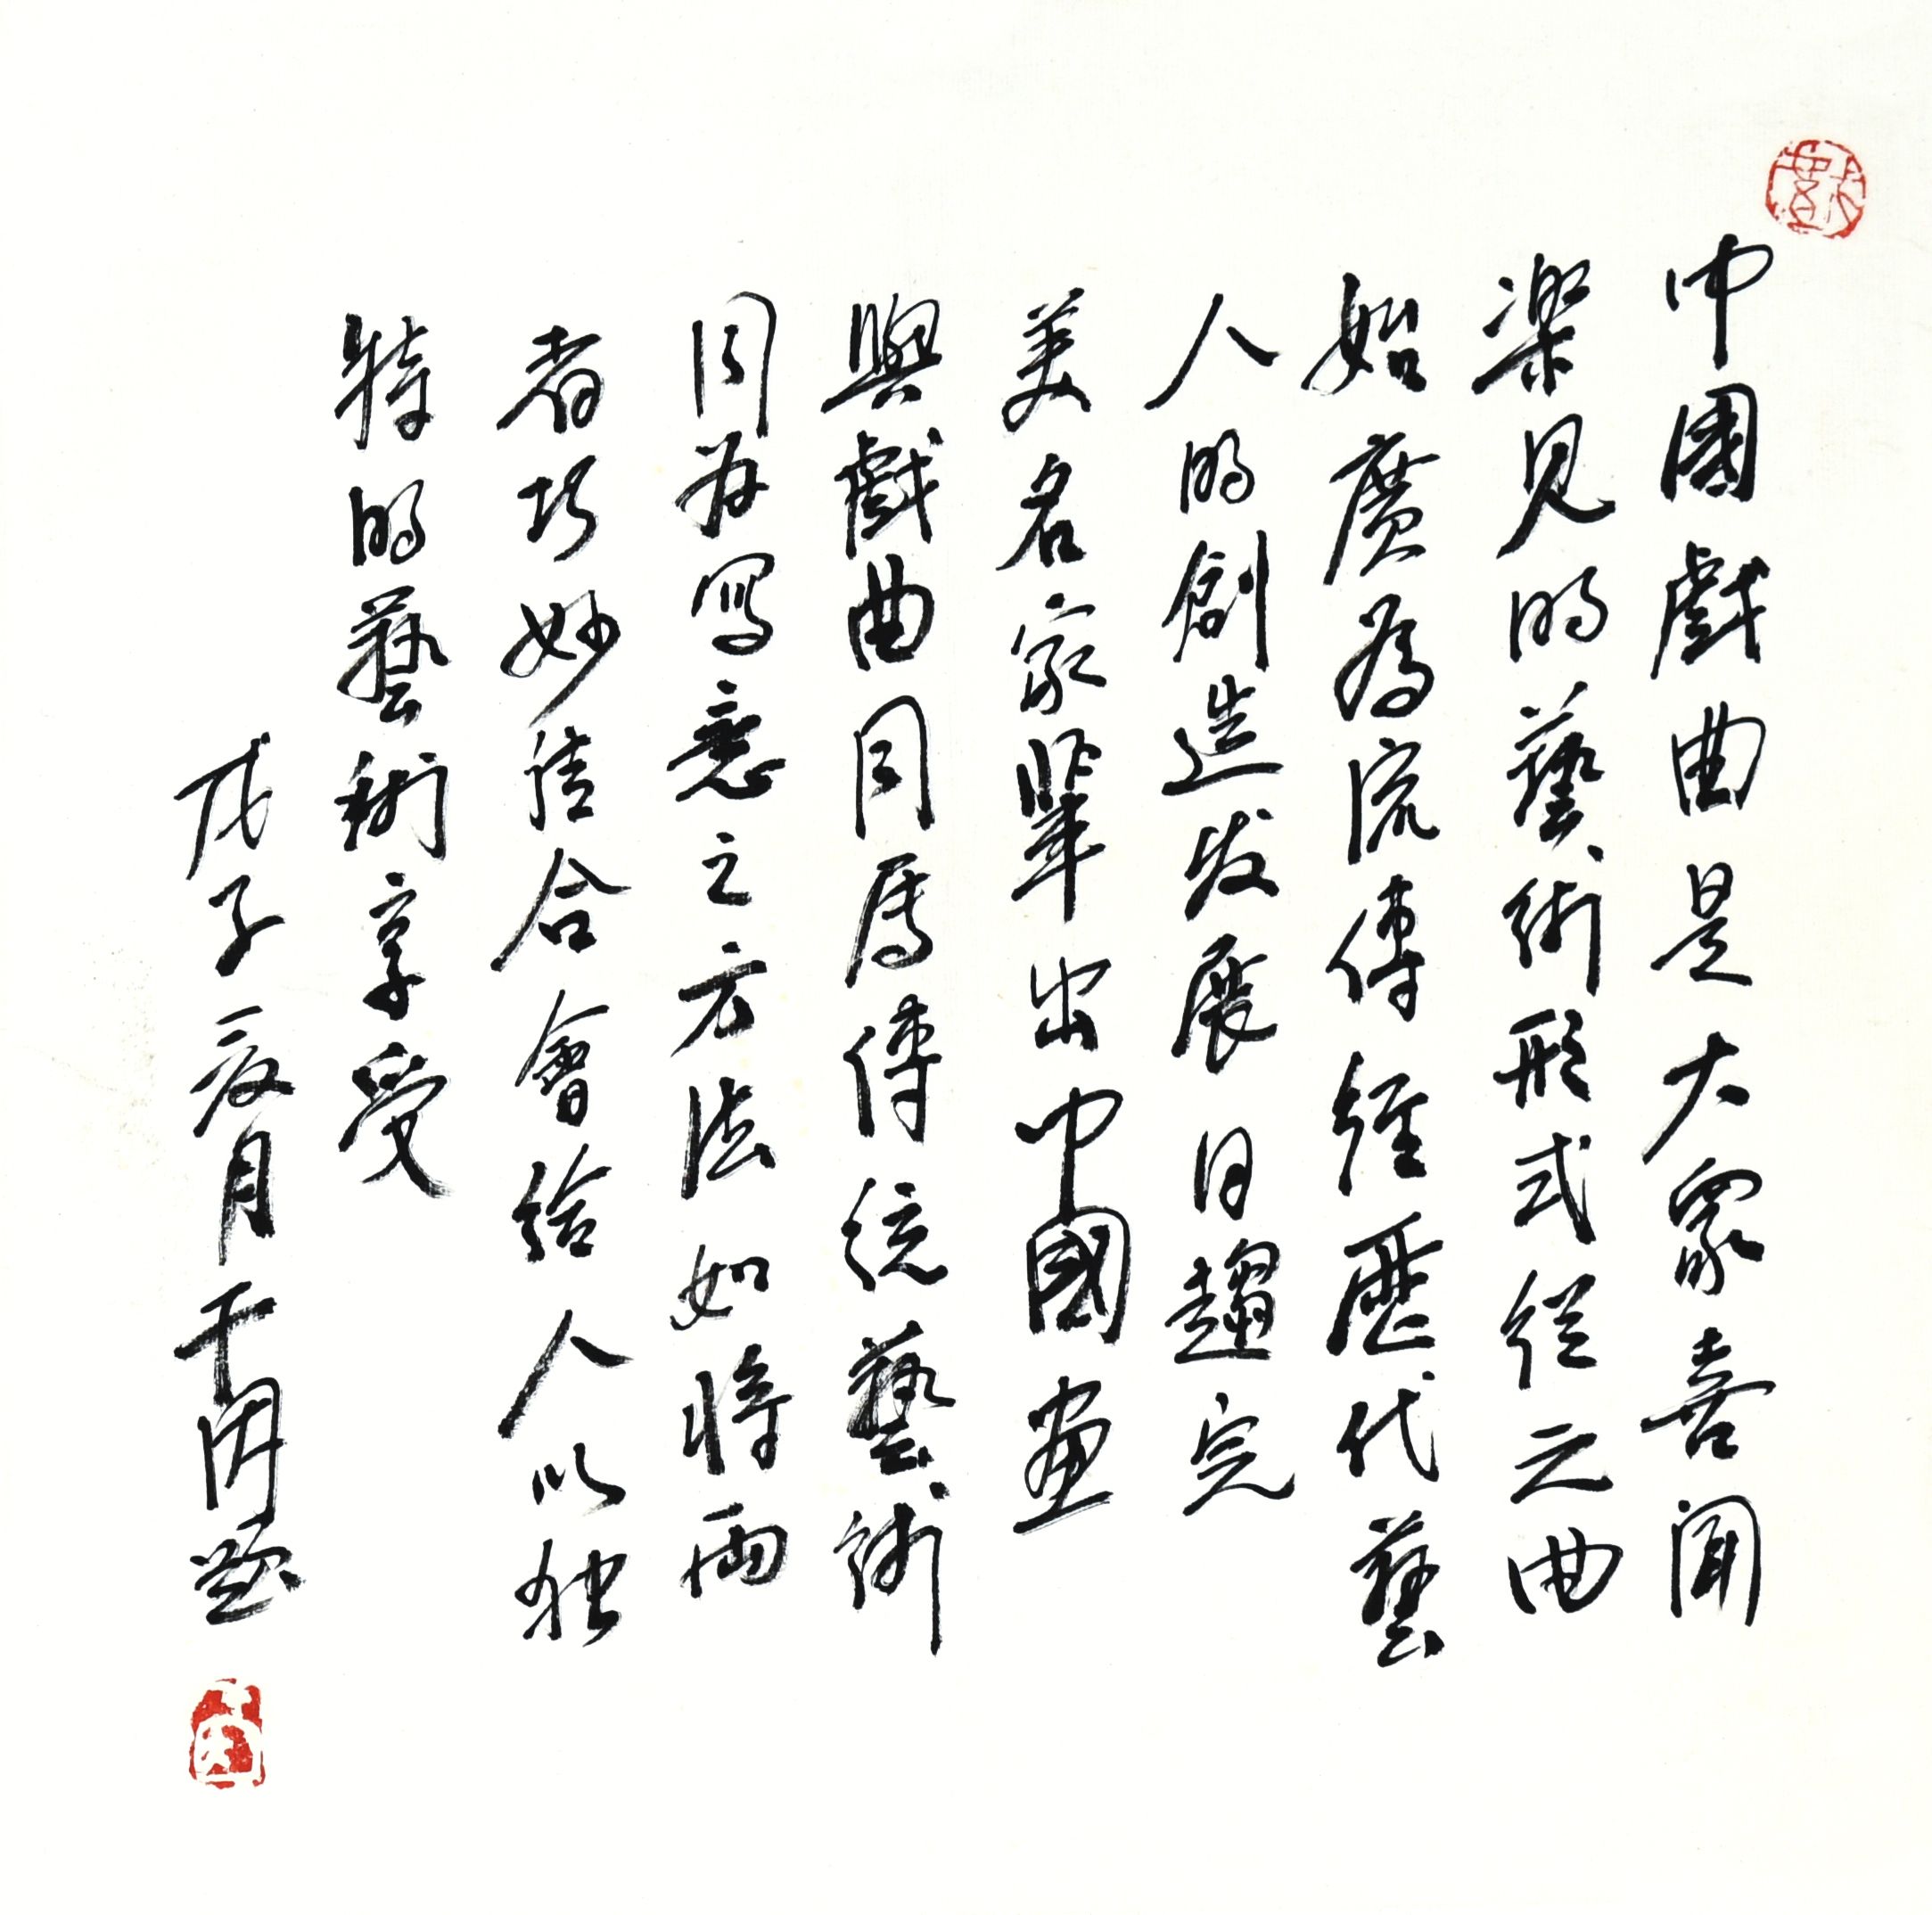 中國戲曲是大衆喜聞
樂見的藝術形式從元曲
始廣為流傳經歷代藝
人的創造发展日趨完
美名家輩出中國畫
與戲曲同属傳統藝術
同为寫意之方法如將兩
者巧妙结合會給人以独
特的藝術享受
戊子夏月